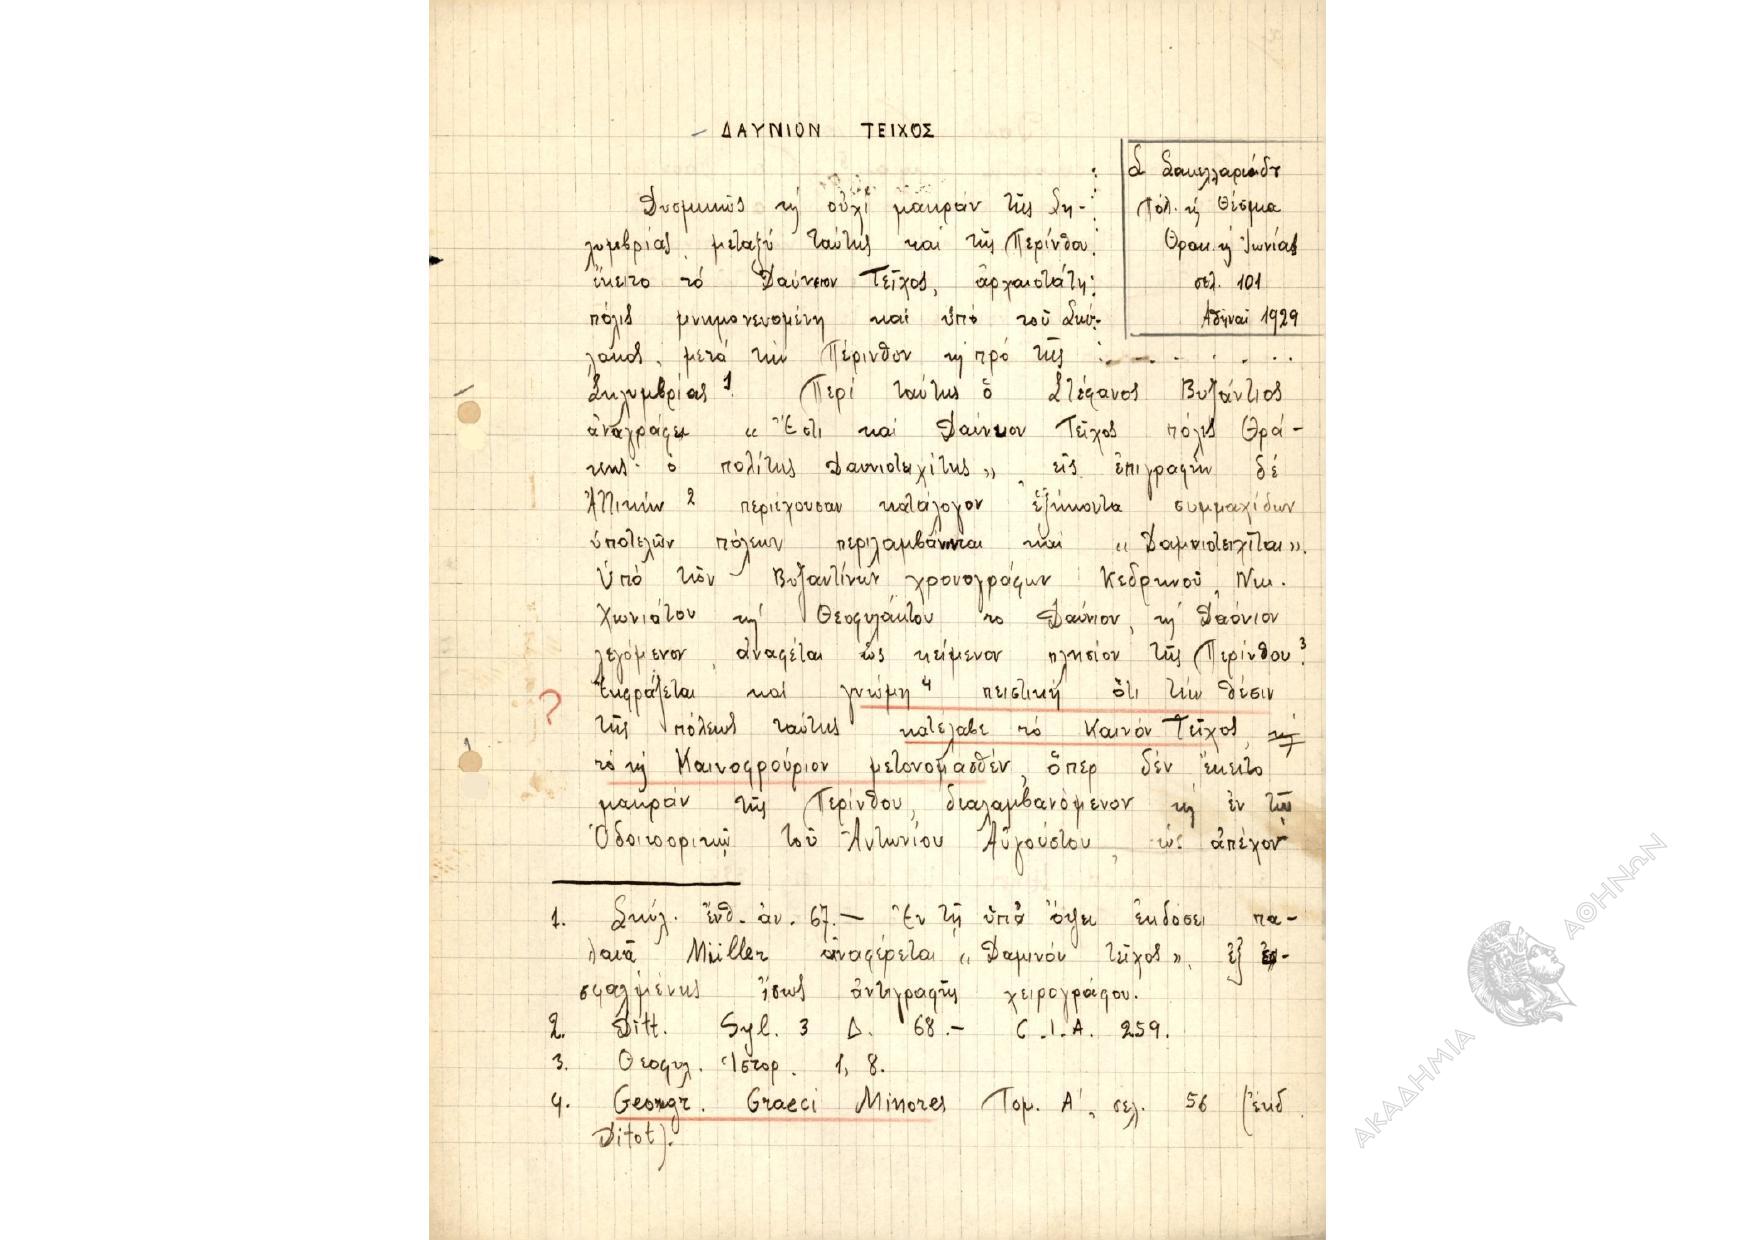 ΔΑΥΝΙΟΝ ΤΕΙΧΟΣ
Σ Σακελλαριάδη
Πόλ. κ̀ Θέσμια
Θρακ. κ̀ Ἰωνίας
σελ. 101
Ἀθῆναι 1929
Δυσμικῶς κ̀ οὐχί μακράν τῆς Ση-
λυμβρίας μεταξύ ταύτης καί τῆς Περίνθου
ἔκειτο τό Δαύνιον Τεῖχος, ἀρχαιοτάτη
πόλις μνημονευομένη καί ὑπό τοῦ Σκύ-
λακος, μετά τήν Πέρινθον κ̀ πρό τῆς
Σηλυμβρίας 1. Περί ταύτης ὁ Στέφανος Βυζάντιος
ἀναγράφει « Ἔστι καί Δαύνιον Τεῖχος πόλις Θρά-
κης· ὁ πολίτης Δαυνιοτειχίτης», εἰς ἐπιγραφήν δέ
Ἀττικήν 2 περιέχουσαν κατάλογον ἑξήκοντα συμμαχίδων
ὑποτελῶν πόλεων περιλαμβάνονται καί «Δαμνιοτειχῖται».
Ὑπό τῶν Βυζαντίνων χρονογράφων Κεδρηνοῦ, Νικ.
Χωνιάτου κ̀ Θεοφυλάκτου το Δαύνιον, κ̀ Δαόνιον
λεγόμενον, ἀναφέται ὡς κείμενον πλησίον τῆς Περίνθου 3.
Ἐκφράζεται καί γνώμη 4 πειστική ὅτι τήν θέσιν
?
τῆς πόλεως ταύτης κατέλαβε τό Καινόν Τεῖχος, κ̀
τό κ̀ Καινοφρούριον μετονομασθέν, ὅπερ δέν ἔκειτο
μακράν τῆς Περίνθου, διαλαμβανόμενον κ̀ ἐν τῷ
Ὁδοιπορικῷ τοῦ Ἀντωνίου Αὐγούστου, ὡς ἀπέχον
1. Σκύλ. ἔνθ. ἀν. 67.— Ἐν τῇ ὑπό ὄψει ἐκδόσει πα-
λαιᾷ Müller ἀναφέρεται «Δαμινόν τεῖχος», ἐξ ἐ-
σφαλμένης ἴσως ἀντιγραφῆς χειρογράφου.
2. Ditt. Syl. 3 Δ. 68.- C.I.A. 259.
3. Θεοφυλ. Ἱστορ. 1, 8.
4. Geongr. Graeci Minores Τομ. Α', σελ. 56 (ἔκδ.
Ditot).
ΑΚΑΔΗΜΙΑ ΑΘΗΝΩΝ